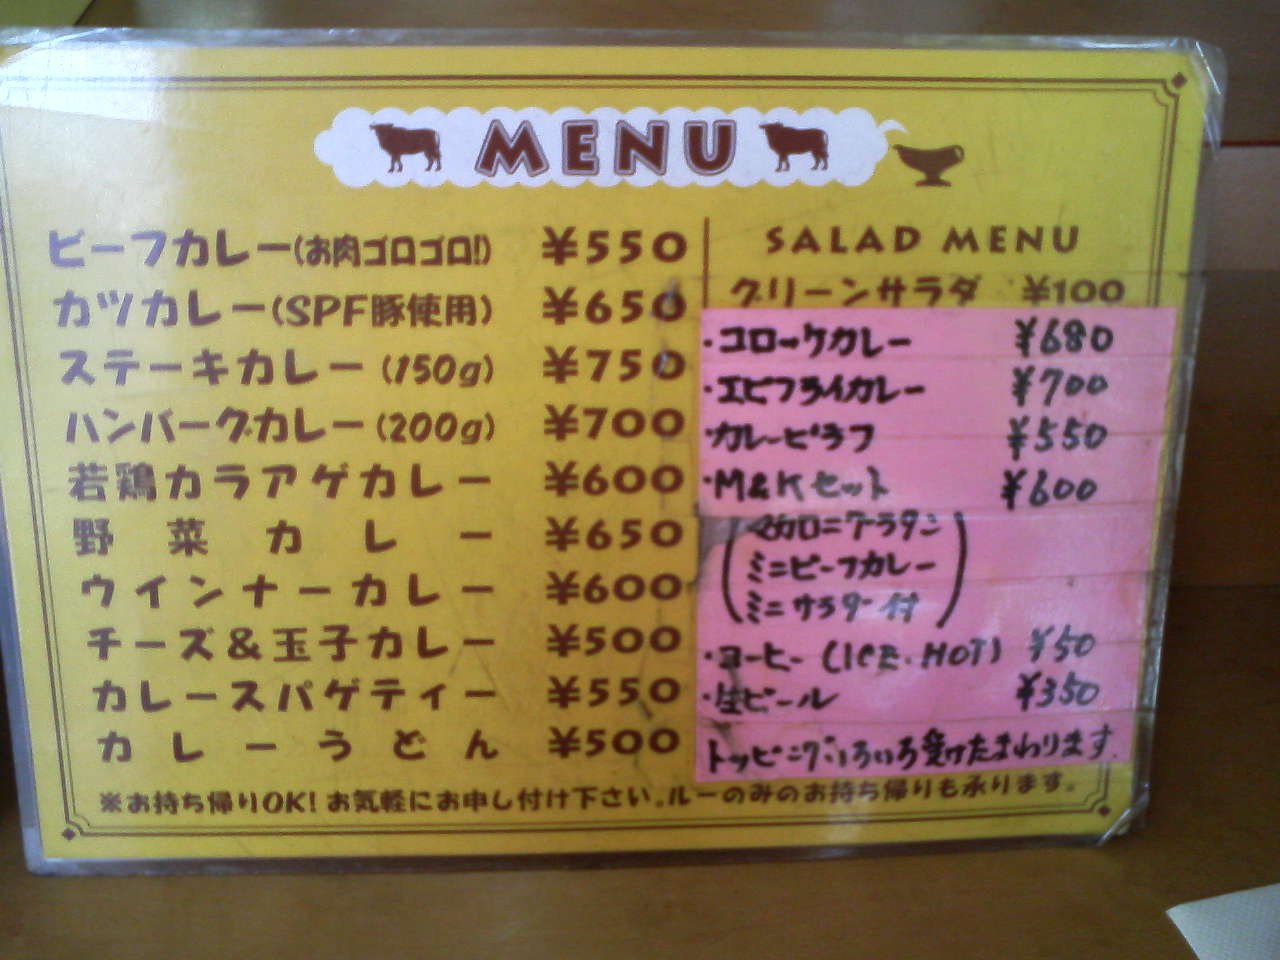 MENU
ビーフカレー(お肉ゴロゴロ!) ¥550
カツカレー(SPF豚使用) ¥650
ステーキカレー(150g) ¥750
ハンバーグカレー(200g) ¥700
若鶏カラアゲカレー ¥600
野菜カレー ¥650
ウインナーカレー ¥600
チーズ&玉子カレー ¥500
カレースパゲティー ¥550
カレーうどん ¥500
SALAD MENU
グリーンサラダ ¥100
・コロッケカレー ¥680
・エビフライカレー ¥700
・カレーピラフ ¥550
・M&Kセット ¥600
(マカロニグラタン
ミニビーフカレー
ミニサラダー付)
・コーヒー(ICE・HOT) ¥50
・生ビール ¥350
トッピングいろいろ受けたまわります.
※お持ち帰りOK!お気軽にお申し付け下さい。ルーのみのお持ち帰りも承ります。